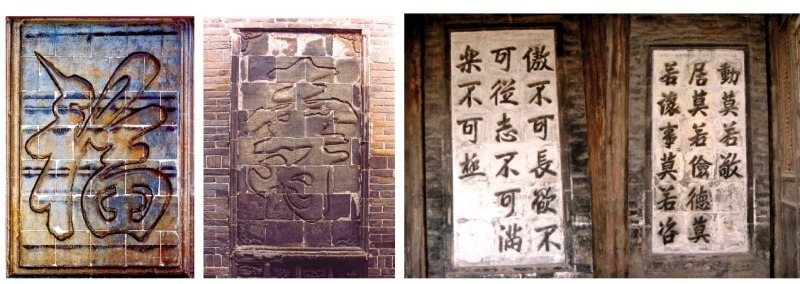 福
傲不可長欲不
可從志不可滿
樂不可極
動莫若敬
居莫若儉德莫
若讓事莫若咨